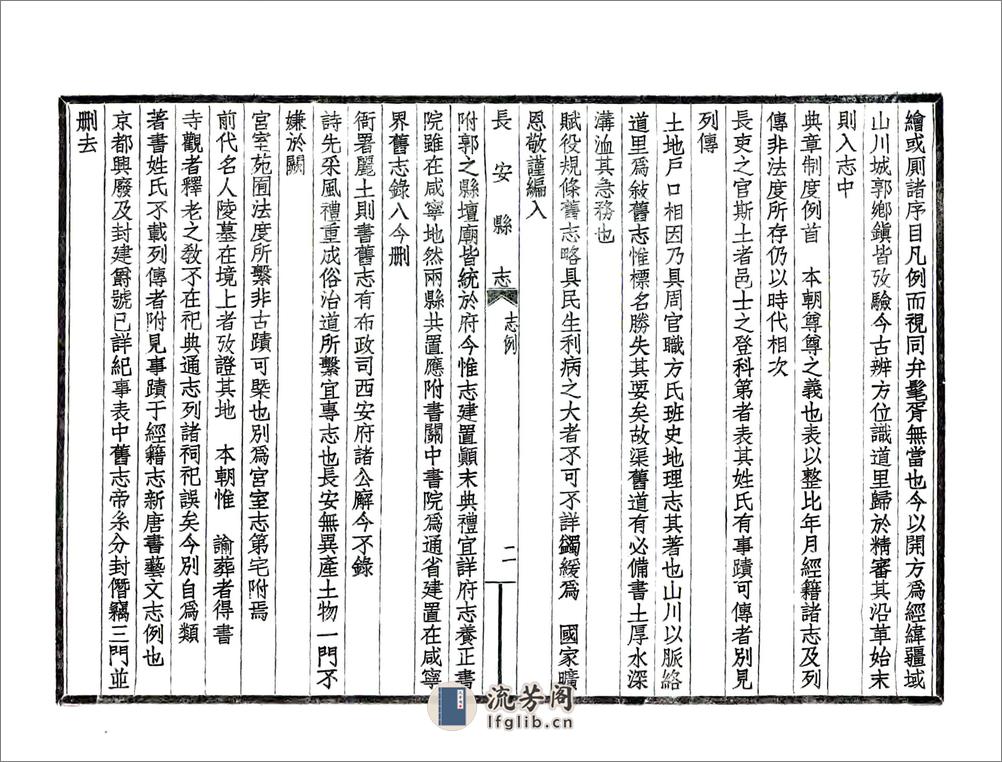 繪或厠諸序目凡例而視同弁髦胥無當也今以開方爲經緯疆域
山川城郭鄉鎭皆攷驗今古辨方位識道里歸於精審其沿革始末
則入志中
典章制度例首　本朝尊尊之義也表以整比年月經籍諸志及列
傳非法度所存仍以時代相次
長吏之官斯土者邑士之登科第者表其姓氏有事蹟可傳者別見
列傳
土地戶口相因乃具周官職方氏班史地理志其著也山川以脈絡
道里爲敍舊志惟標名勝失其要矣故渠舊道有必備書土厚水深
溝洫其急務也
賦役規條舊志略具民生利病之大者不可不詳蠲緩爲　國家曠
恩敬謹編入
長安縣志　志例　二
附郭之縣壇廟皆統於府今惟志建置顚末典禮宜詳府志養正書
院雖在咸寧地然兩縣共置應附書關中書院爲通省建置在咸寧
界舊志錄入今刪
衙署麗土則書舊志有布政司西安府諸公廨今不錄
詩先采風禮重成俗治道所繫宜專志也長安無異產土物一門不
嫌於闕
宮室苑囿法度所繫非古蹟可槩也別爲宮室志第宅附焉
前代名人陵墓在境上者攷證其地　本朝惟　諭葬者得書
寺觀者釋老之敎不在祀典通志列諸祠祀誤矣今別自爲類
著書姓氏不載列傳者附見事蹟于經籍志新唐書藝文志例也
京都興廢及封建爵號已詳紀事表中舊志帝系分封僭竊三門並
刪去
流芳阁
lfglib.cn